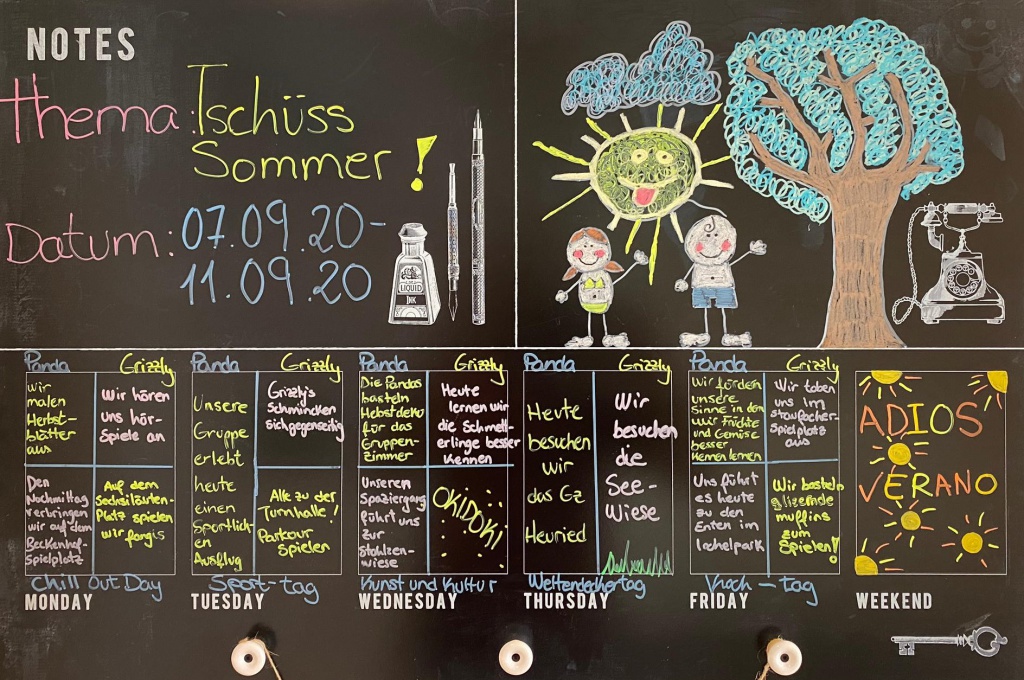 NOTES
Thema: Tschüss
Sommer!
Datum: 07.09.20-
11.09.20
LIQUID
INK
Panda
Grizzly
wir
malen
Herbst-
blätter
aus
Wir hören
uns hör-
Spiele an
Den
Nachmittag
verbringen
wir auf dem
Beckenhof-
Spielplatz
Auf dem
Sechsiläuten-
Platz spielen
wir fangis
Chill Out Day
MONDAY
Panda
Grizzly
Unsere
Gruppe
erlebt
heute
einen
Sportlich-
en
Ausflug
Grizzly's
Schmincken
sich gegenseitig
Alle zu der
Turnhalle!
Parkour
Spielen
Sport-tag
TUESDAY
Panda
Grizzly
Die Pandas
basteln
Hebstdeko
für das
Gruppen-
zimmer
Heute
lernen wir
die Schmett-
erlinge besser
kennen
Unseren
Spaziergang
führt uns
zur
Stolzen-
wiese
OKIDOKI
Kunst und Kultur
WEDNESDAY
Panda
Grizzly
Heute
besuchen
wir
das Gz
Heuried
Wir
besuchen
die
See-
Wiese
THURSDAY
Panda
Grizzly
Wir fördern
unsere
Sinne in dem
wir Früchte
und Gemüse
besser
kennen lernen
Wir toben
uns im
Stauffacher-
Spielplatz
aus
Uns führt
es heute
zu den
Enten im
Irchelpark
Wir basteln
glizernde
muffins
zum
Spielen!
Koch-tag
FRIDAY
ADIOS
VERANO
WEEKEND